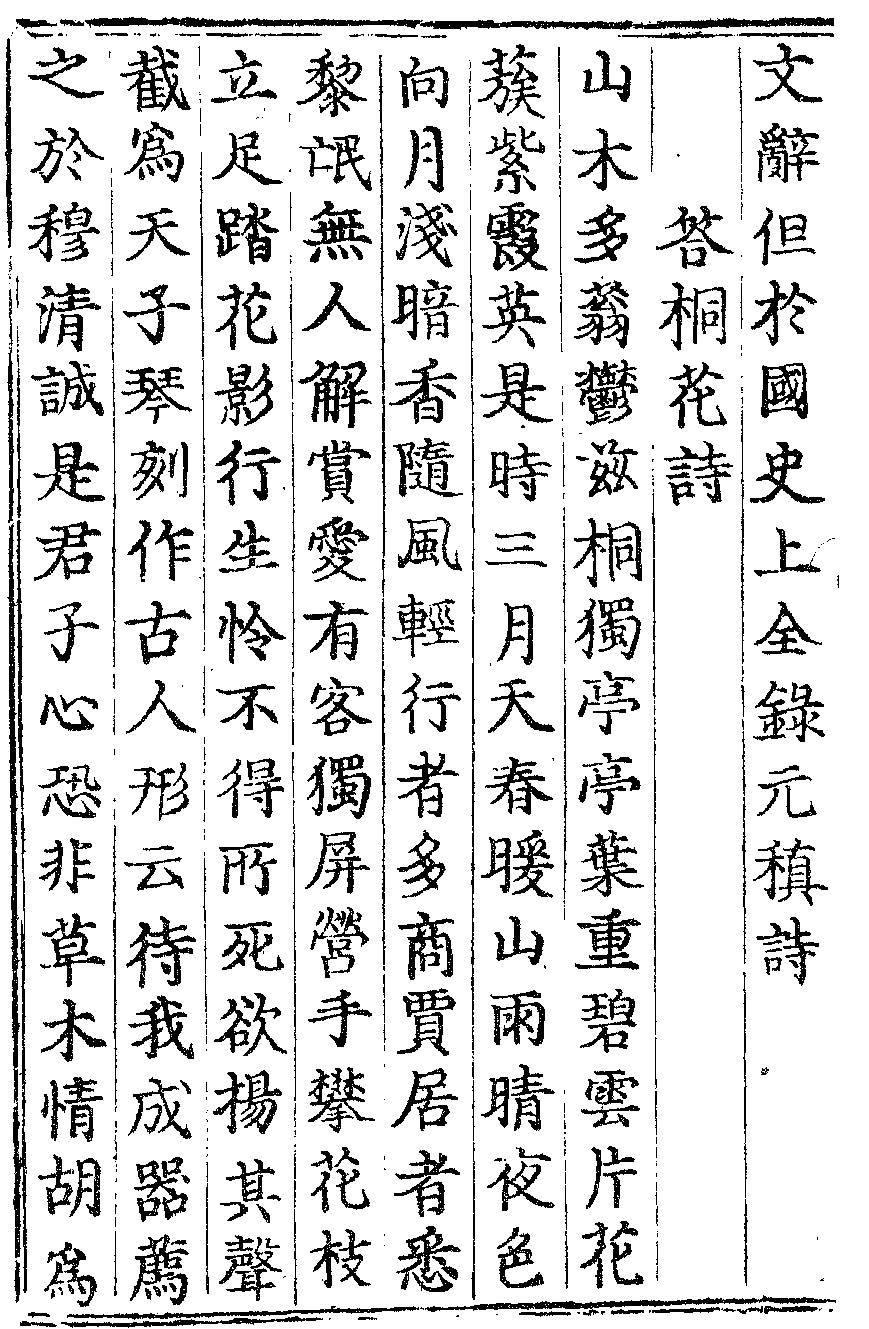 文辭但於國史上全錄元稹詩
答桐花詩
山木多蓊鬱茲桐獨亭亭葉重碧雲片花
蔟紫霞英是時三月天春暖山雨晴夜色
向月淺暗香隨風輕行者多商賈居者悉
黎氓無人解賞愛有客獨屏營手攀花枝
立足踏花影行生怜不得所死欲揚其聲
截爲天子琴刻作古人形云待我成器薦
之於穆清誠是君子心恐非草木情胡爲